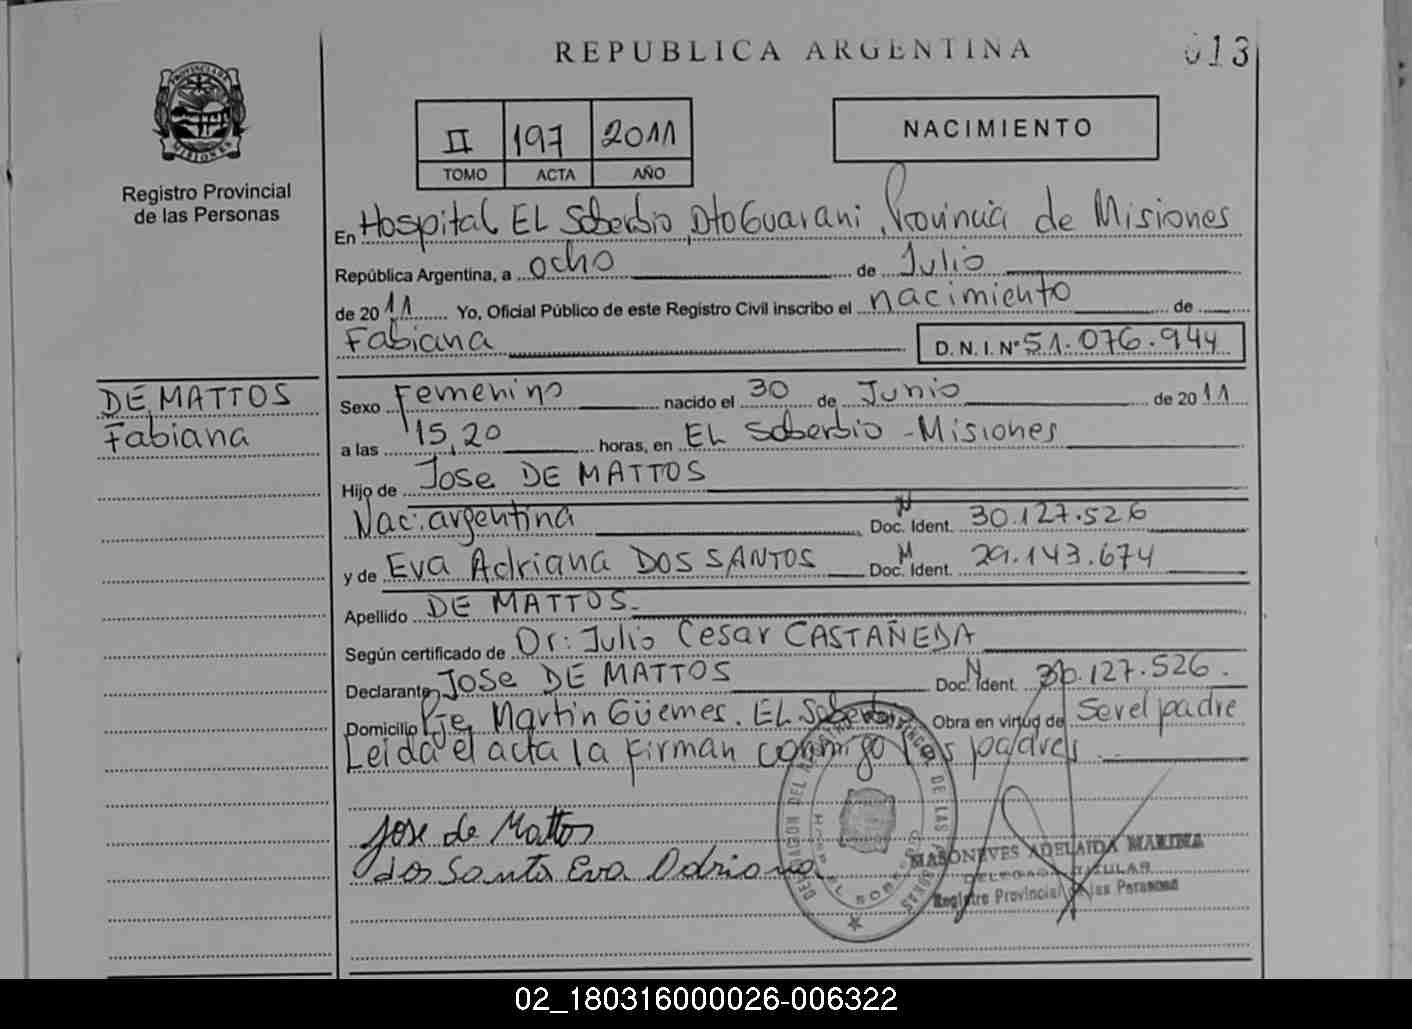 REPUBLICA ARGENTINA
013
PROVINCIA DE
MISIONES
Registro Provincial
de las Personas
II 197 2011
TOMO ACTA AÑO
NACIMIENTO
En Hospital EL Soberbio, Dto Guarani, Provincia de Misiones
República Argentina, a ocho de Julio
de 2011 Yo, Oficial Público de este Registro Civil inscribo el nacimiento de
Fabiana D. N. I. Nº 51.076.944
DE MATTOS
Fabiana
Sexo Femenino nacido el 30 de Junio de 2011
a las 15,20 horas, en EL Soberbio - Misiones
Hijo de Jose DE MATTOS
Nac. argentina Doc. Ident. 30.127.526
y de Eva Adriana DOS SANTOS Doc. Ident. M 29.143.674
Apellido DE MATTOS.
Según certificado de Dr: Julio Cesar CASTAÑEDA
Declarante Jose DE MATTOS Doc. Ident. N 30.127.526.
Domicilio Pje, Martin Güemes. EL Soberbio Obra en virtud de Ser el padre
Leida el acta la firman conmigo los padres
Jose de Mattos
dos Santos Eva Adriana
MASONEVES ADELAIDA MARINA
DELEGADA TITULAR
Registro Provincial de las Personas
02_180316000026-006322